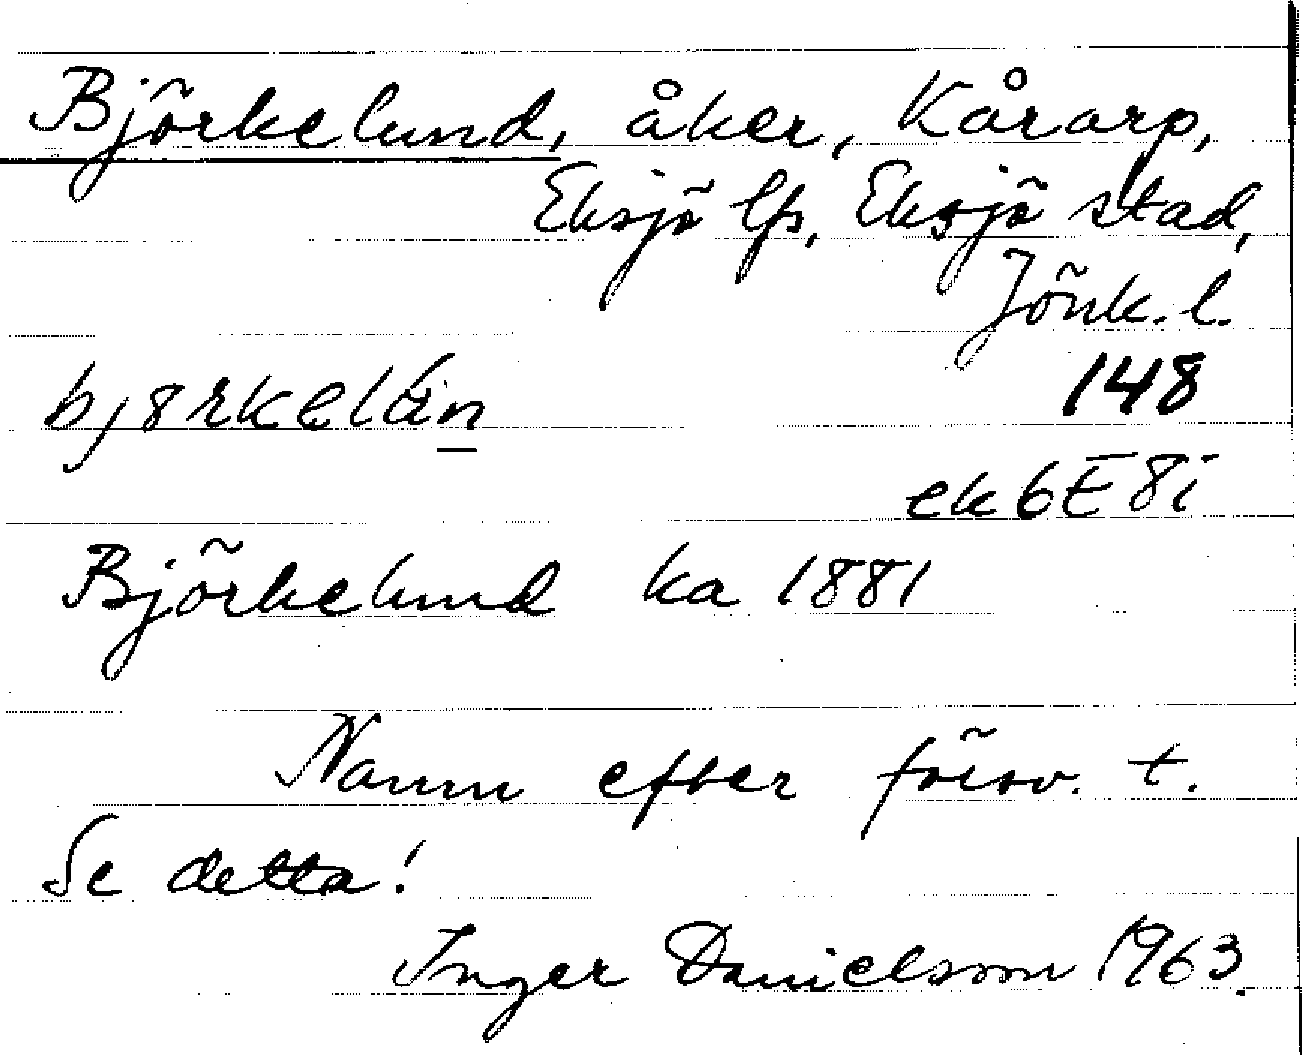 Björkelund, åker, Kårarp,
Eksjö lfs, Eksjö stad,
Jönk. l.
148
ek 6E 8i
Björkelund ka 1881
Namn efter försv. t.
Se detta!
Inger Danielsson 1963.